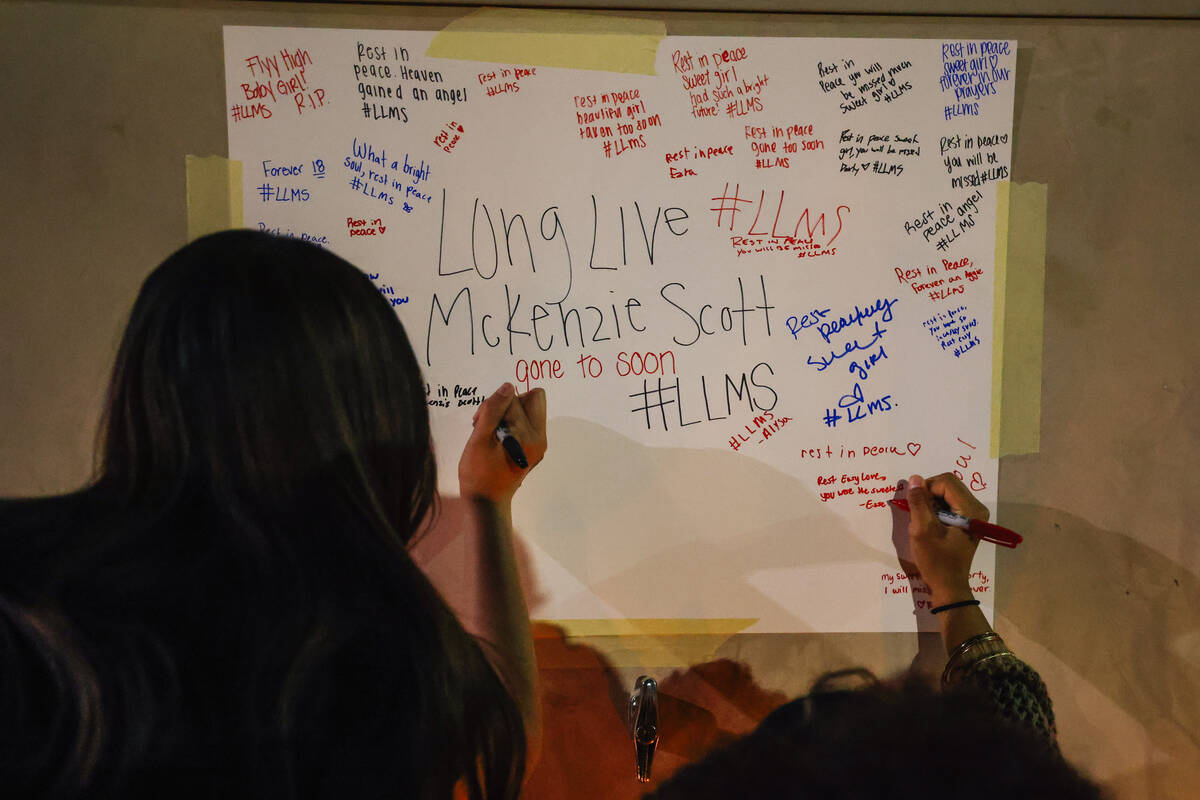 Flyy High
Baby Girl!
R.I.P.
#LLMS
Rest in
peace. Heaven
gained an angel
#LLMS
rest in peace
#LLMS
rest in
peace
rest in peace
beautiful girl
taken too soon
#LLMS
Rest in peace
sweet girl
had such a bright
future
#LLMS
Rest in
Peace you will
be missed much
sweet girl
#LLMS
Rest in peace
sweet girl
forever in our
prayers
#LLMS
Forever 18
#LLMS
What a bright
soul, rest in peace
#LLMS
Rest in peace
Rest in peace
gone too soon
#LLMS
Rest in peace sweet
girl, you will be missed
#LLMS
Rest in peace
you will be
missed #LLMS
Rest in peace.
Rest in
peace
you
Long Live
McKenzie Scott
gone to soon
#LLMS
#LLMS
Rest in
you will be
#LLMS
Rest in
peace angel
#LLMS
Rest in Peace,
Forever an Aggie
#LLMS
Rest
sweet
girl
#LLMS.
rest in peace,
#LLMS
in Peace
#LLMS
-Alysa
rest in peace
Rest Easy Love,
you were the sweetest
My
I will